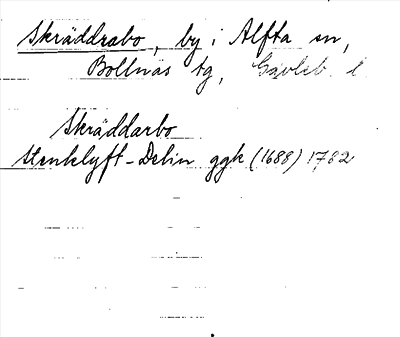 Skräddrabo, by i Alfta sn,
Bollnäs tg, Gävleb. l
Skräddarbo
Stenklyft-Delin ggk (1688) 1782